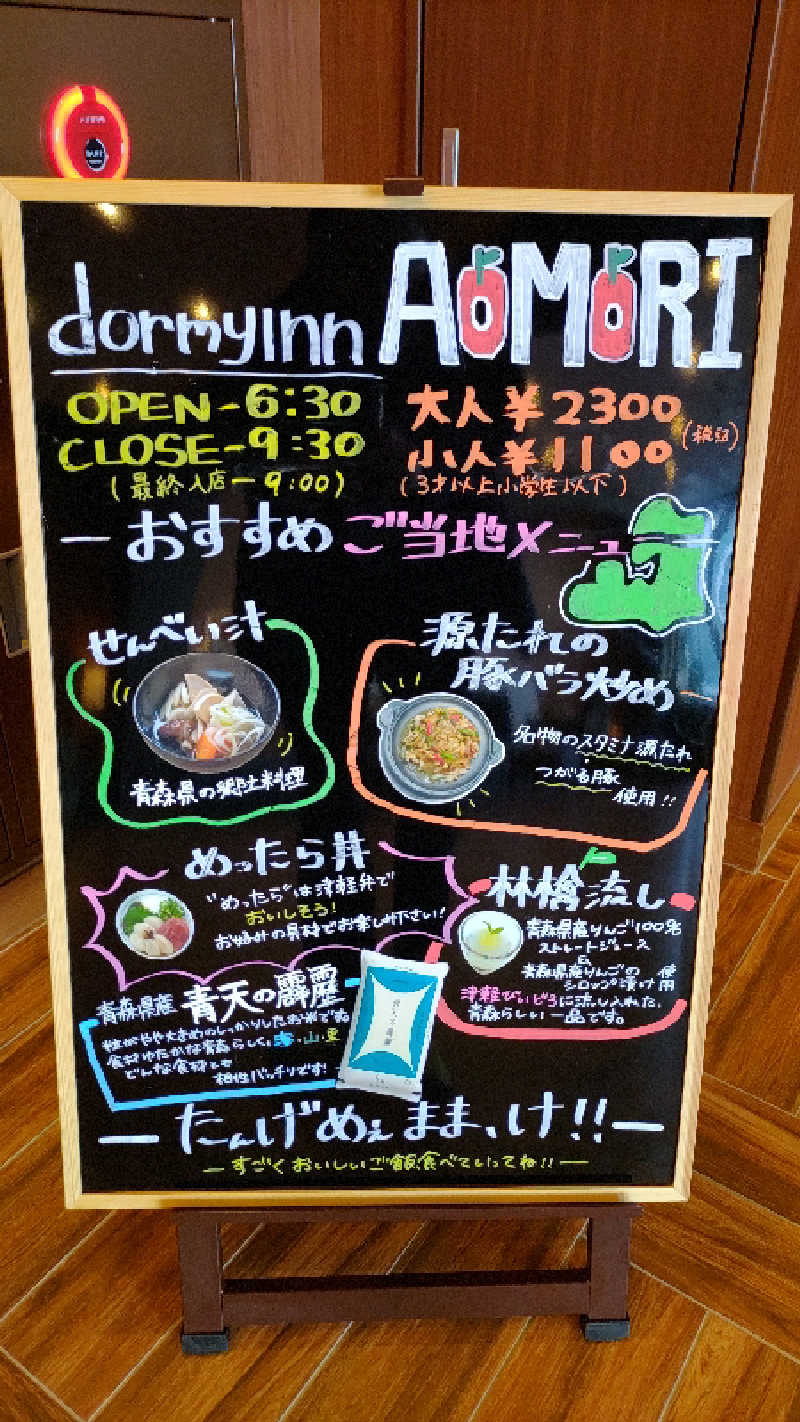 dormy inn AOMORI
OPEN-6:30
CLOSE-9:30
(最終入店-9:00)
大人¥2300
小人¥1100
(税込)
(3才以上小学生以下)
-おすすめ ご当地メニュー-
せんべい汁
青森県の郷土料理
源たれの
豚バラ炒め
名物のスタミナ源たれ
つがる豚
使用!!
めったら丼
"めったら"は津軽弁で
おいしそう!
お好みの具材でお楽しみ下さい!
林檎流し
青森県産りんご100%
ストレートジュース
&
青森県産りんごの
シロップ漬け使用
津軽びいどろに流し入れた、
青森らしい一品です。
青森県産 青天の霹靂
粒がやや大きめのしっかりしたお米です
食材ゆたかな青森らしく、海・山・里
どんな食材とも
相性バッチリです!
青天の霹靂
-たんげめぇ まま、け!!-
-すごくおいしいご飯食べていってね!!-